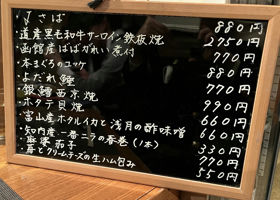 〆さば 880円
道産黒毛和牛サーロイン鉄板焼 2750円
函館産ばばがれい煮付 770円
本まぐろのユッケ 880円
よだれ鰹 880円
銀鱈西京焼 770円
ホタテ貝焼 990円
富山産ホタルイカと浅月の酢味噌 660円
知内産一番ニラの春巻(1本) 660円
麻婆茄子 330円
苺とクリームチーズの生ハム包み 770円
550円